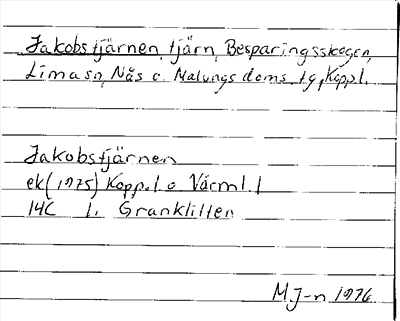 Jakobstjärnen, tjärn, Besparingsskogen,
Lima sn, Nås o. Malungs doms. tg, Koppl.
Jakobstjärnen
ek (1975) Kopp.l o Värml. l
14C 1. Granklitten
M J-n 1976